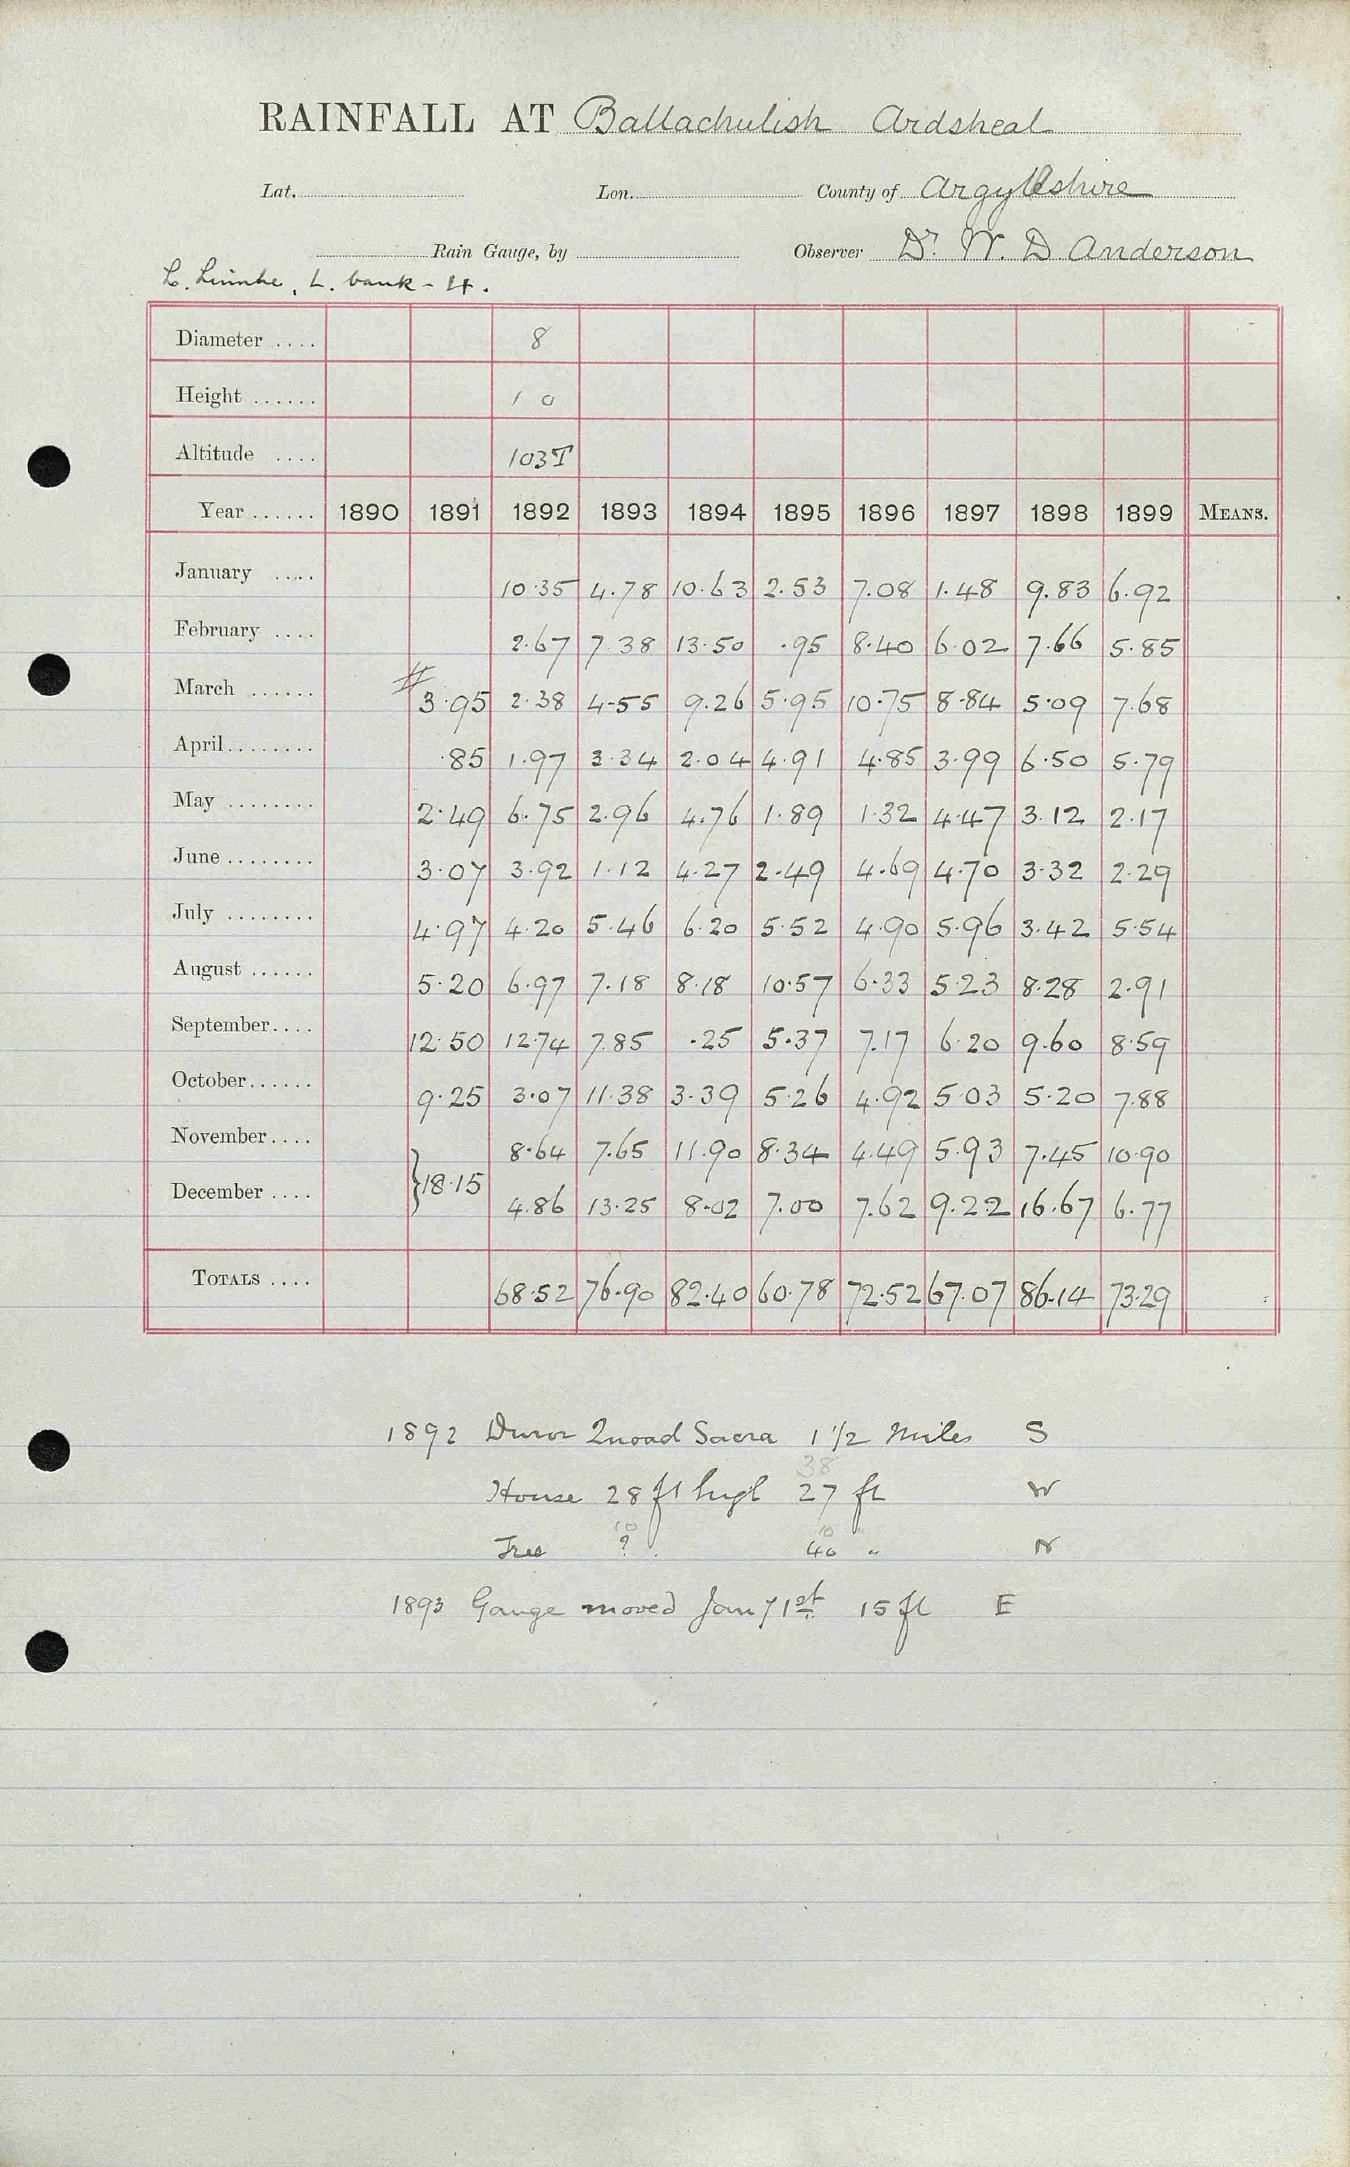 RAINFALL AT Ballachulish Ardsheal
Lat. Lon. County of Argyllshire
Rain Gauge, by Observer Dr. W. D Anderson
L. Linnhe, L. bank - 4.
Diameter .... 8
Height ...... 1 0
Altitude .... 103T
Year ...... 1890 1891 1892 1893 1894 1895 1896 1897 1898 1899 MEANS.
January .... 10.35 4.78 10.63 2.53 7.08 1.48 9.83 6.92
February .... 2.67 7.38 13.50 .95 8.40 6.02 7.66 5.85
March ...... # 3.95 2.38 4.55 9.26 5.95 10.75 8.84 5.09 7.68
April........ .85 1.97 3.34 2.04 4.91 4.85 3.99 6.50 5.79
May ........ 2.49 6.75 2.96 4.76 1.89 1.32 4.47 3.12 2.17
June ........ 3.07 3.92 1.12 4.27 2.49 4.69 4.70 3.32 2.29
July ........ 4.97 4.20 5.46 6.20 5.52 4.90 5.96 3.42 5.54
August ...... 5.20 6.97 7.18 8.18 10.57 6.33 5.23 8.28 2.91
September.... 12.50 12.74 7.85 .25 5.37 7.17 6.20 9.60 8.59
October...... 9.25 3.07 11.38 3.39 5.26 4.92 5.03 5.20 7.88
November.... 8.64 7.65 11.90 8.34 4.49 5.93 7.45 10.90
December .... }18.15 4.86 13.25 8.02 7.00 7.62 9.22 16.67 6.77
TOTALS .... 68.52 76.90 82.40 60.78 72.52 67.07 86.14 73.29
1892 Duror Quoad Sacra 1 1/2 Miles S
38
House 28 ft high 27 ft W
10 10
Tree ? 40 " N
1893 Gauge moved Jany 1st 15 ft E